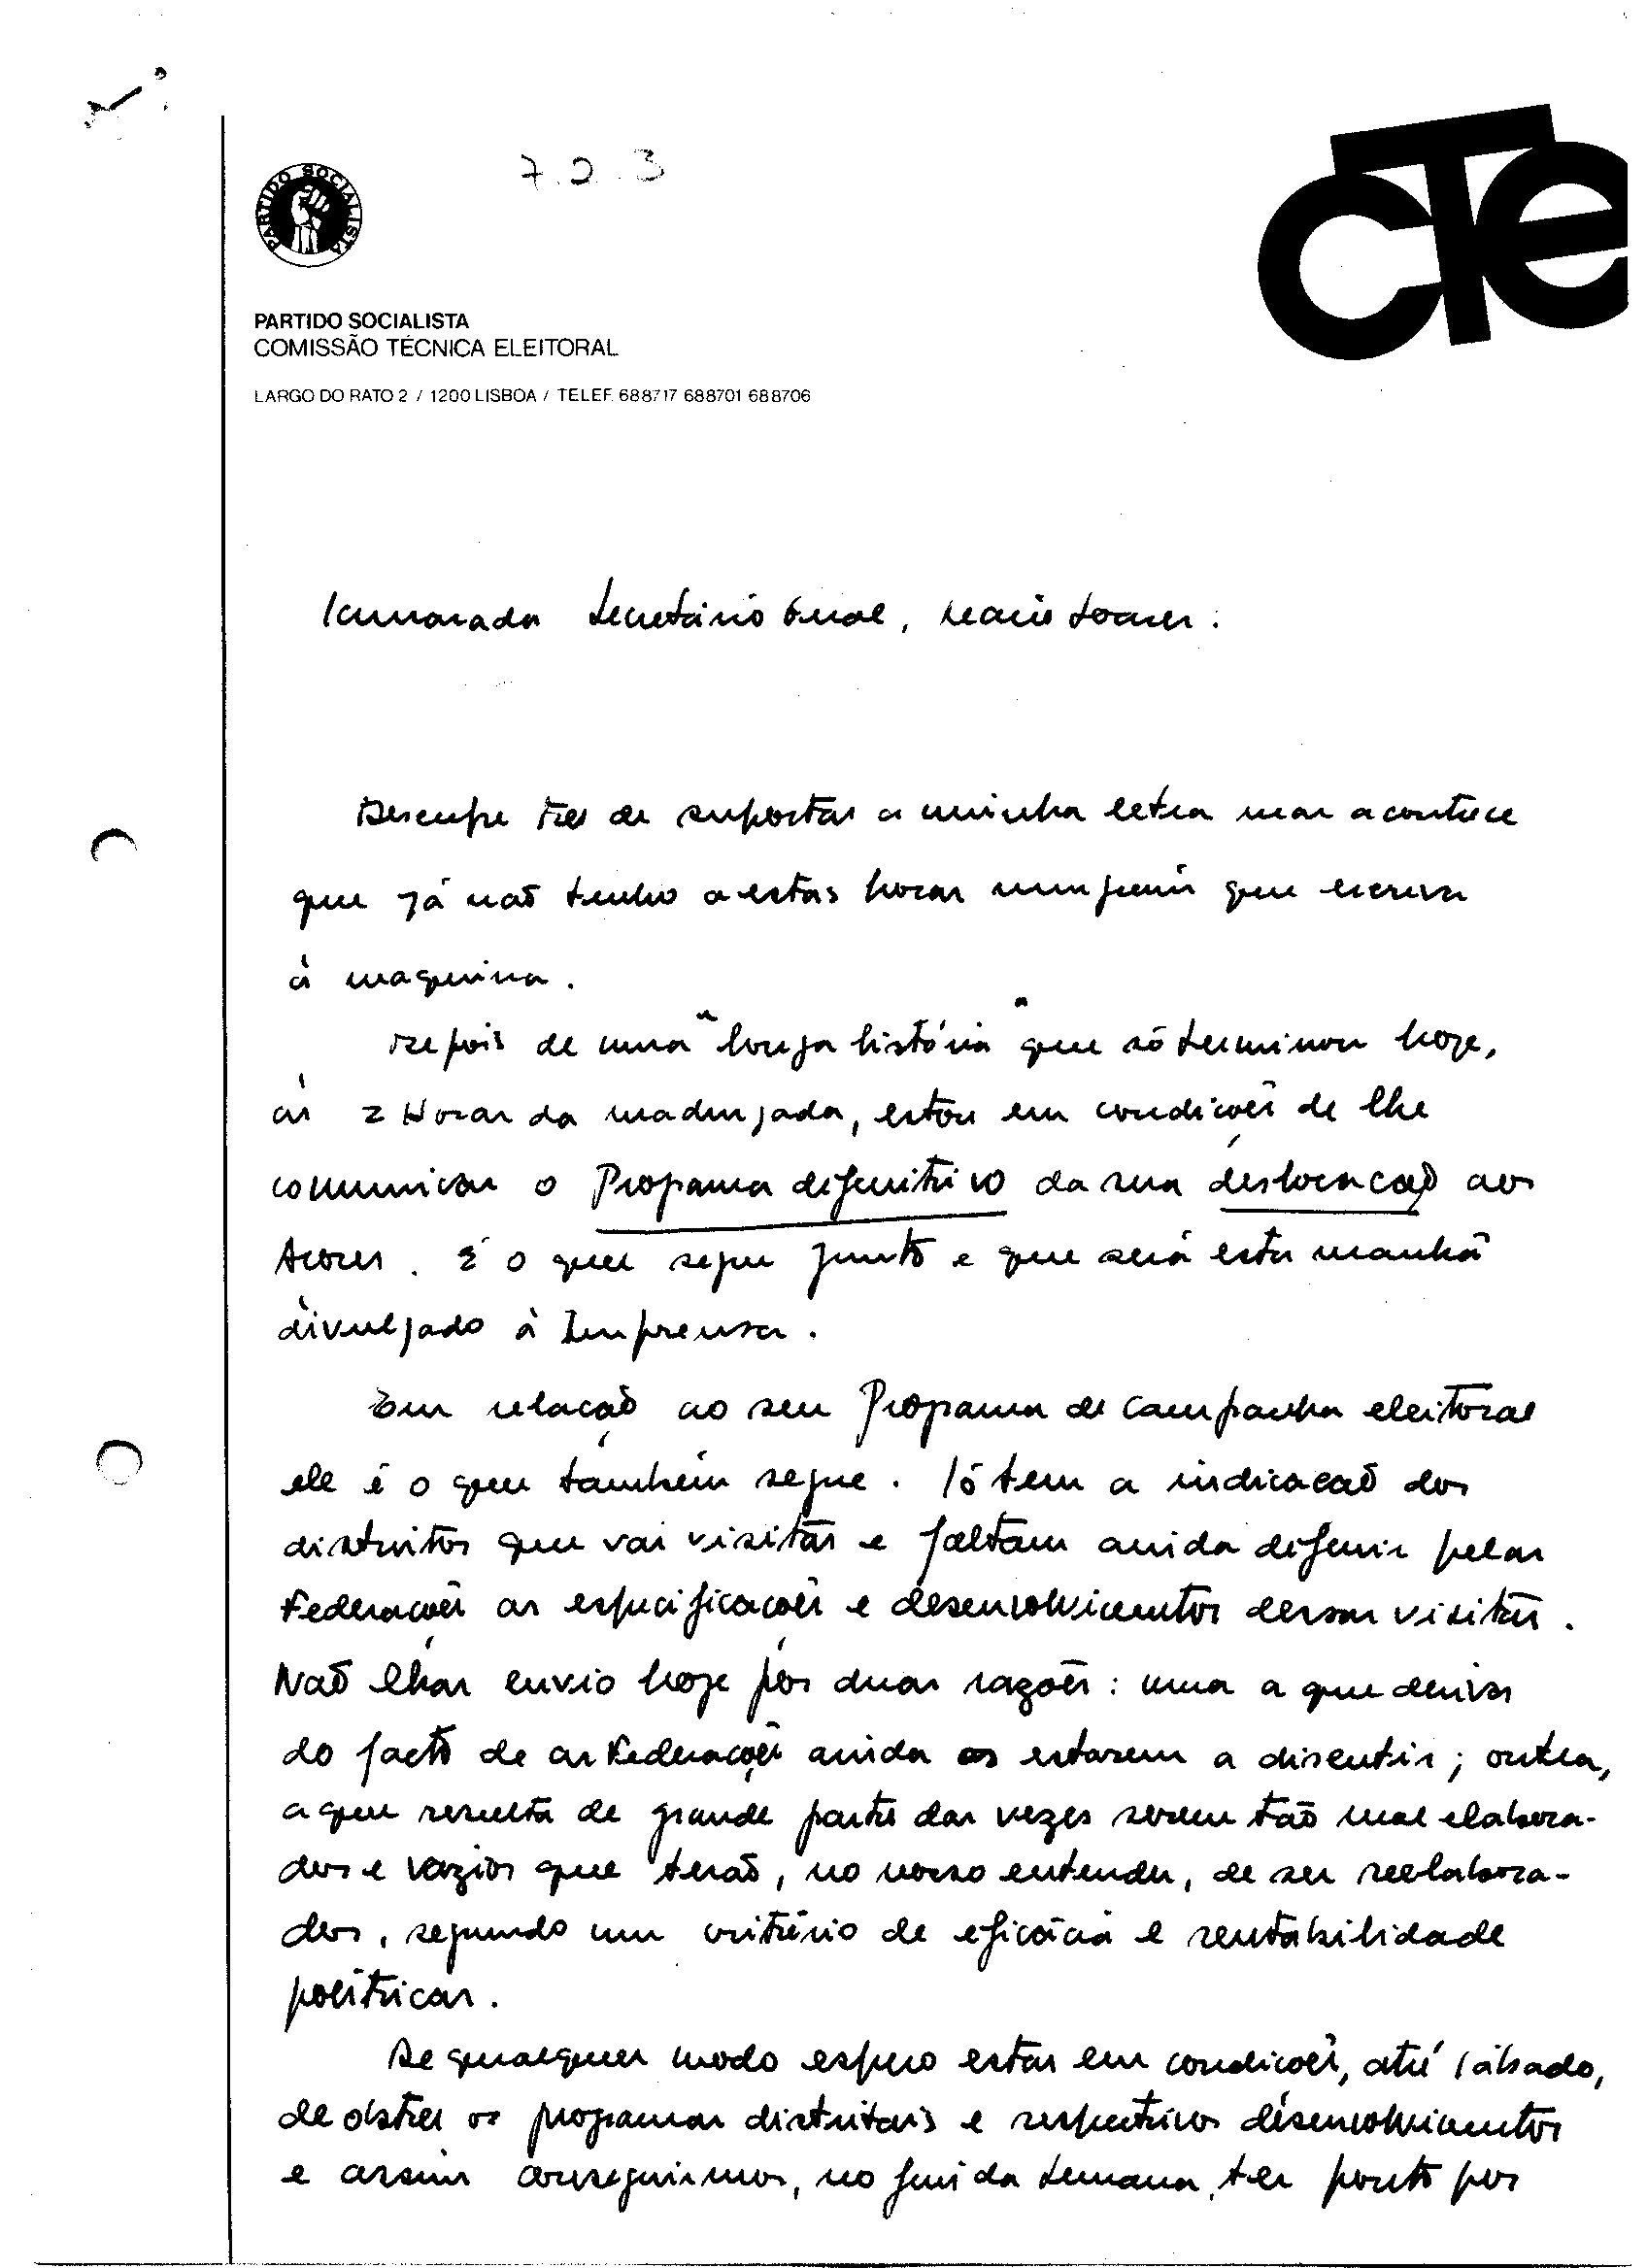 7.2.3
CTe
PARTIDO SOCIALISTA
PARTIDO SOCIALISTA
COMISSÃO TÉCNICA ELEITORAL
LARGO DO RATO 2 / 1200 LISBOA / TELEF. 688717 688701 688706
Camarada Secretário Geral, Mário Soares:
Desculpe ter de suportar a minha letra mas acontece
que já não tenho a estas horas ninguém que escreva
à maquina.
Depois de uma "longa história" que só terminou hoje,
às 2 Horas da madrugada, estou em condições de lhe
comunicar o Programa definitivo da sua deslocação aos
Açores. É o que segue junto e que será esta manhã
divulgado à Imprensa.
Em relação ao seu Programa de campanha eleitoral
ele é o que também segue. Só tem a indicação dos
distritos que vai visitar e faltam ainda definir pelas
Federações as especificações e desenvolvimentos dessas visitas.
Não lhas envio hoje por duas razões: uma a que deriva
do facto de as Federações ainda as estarem a discutir; outra,
a que resulta de grande parte das vezes serem tão mal elabora-
dos e vazios que terão, no nosso entender, de ser reelabora-
dos, segundo um critério de eficácia e rentabilidade
políticas.
De qualquer modo espero estar em condições, até Sábado,
de obter os programas distritais e respectivos desenvolvimentos
e assim conseguirmos, no fim da semana, ter pronto por